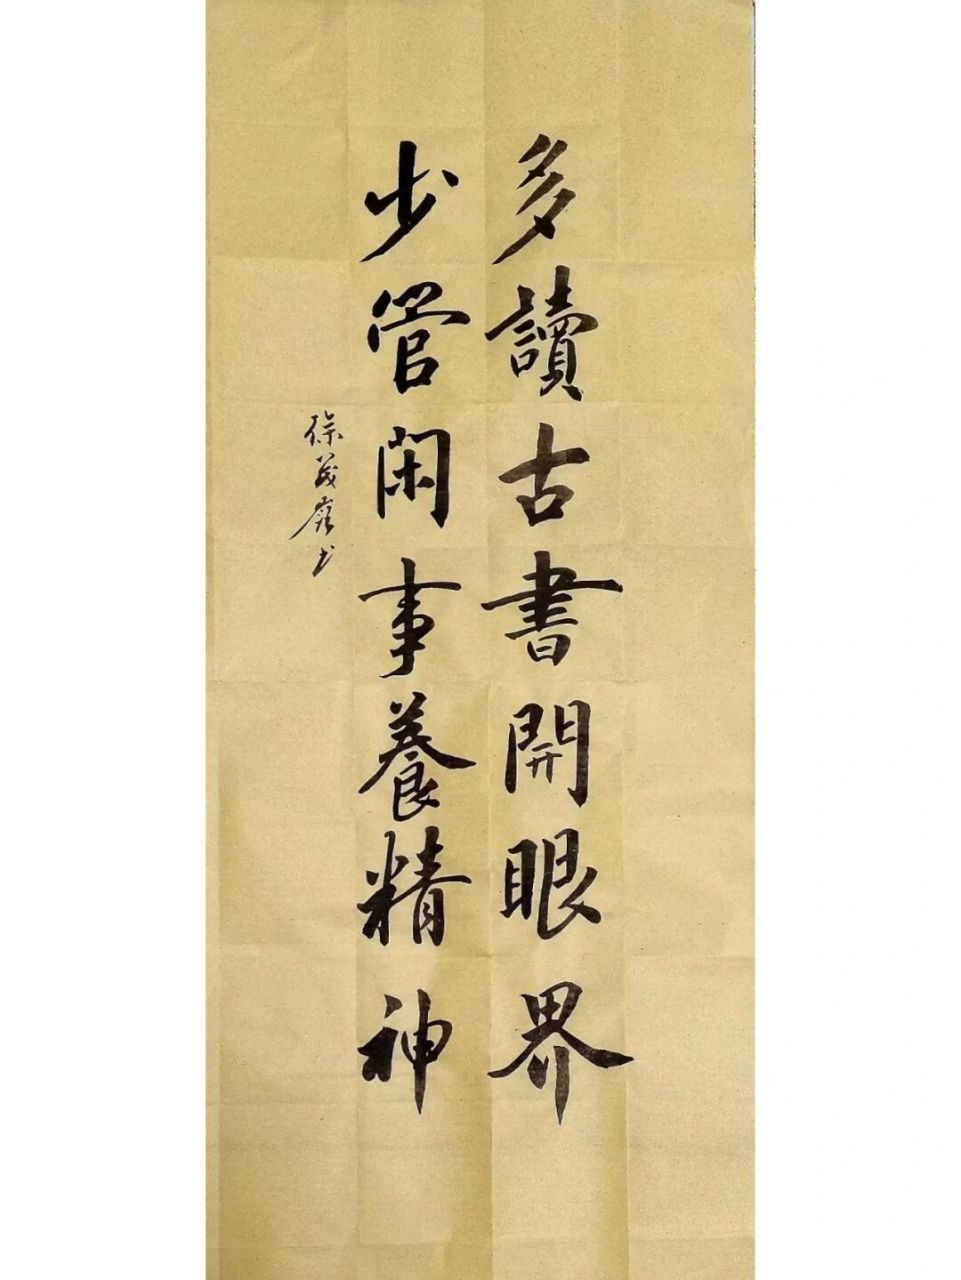 多讀古書開眼界
少管閑事養精神
徐茂
書